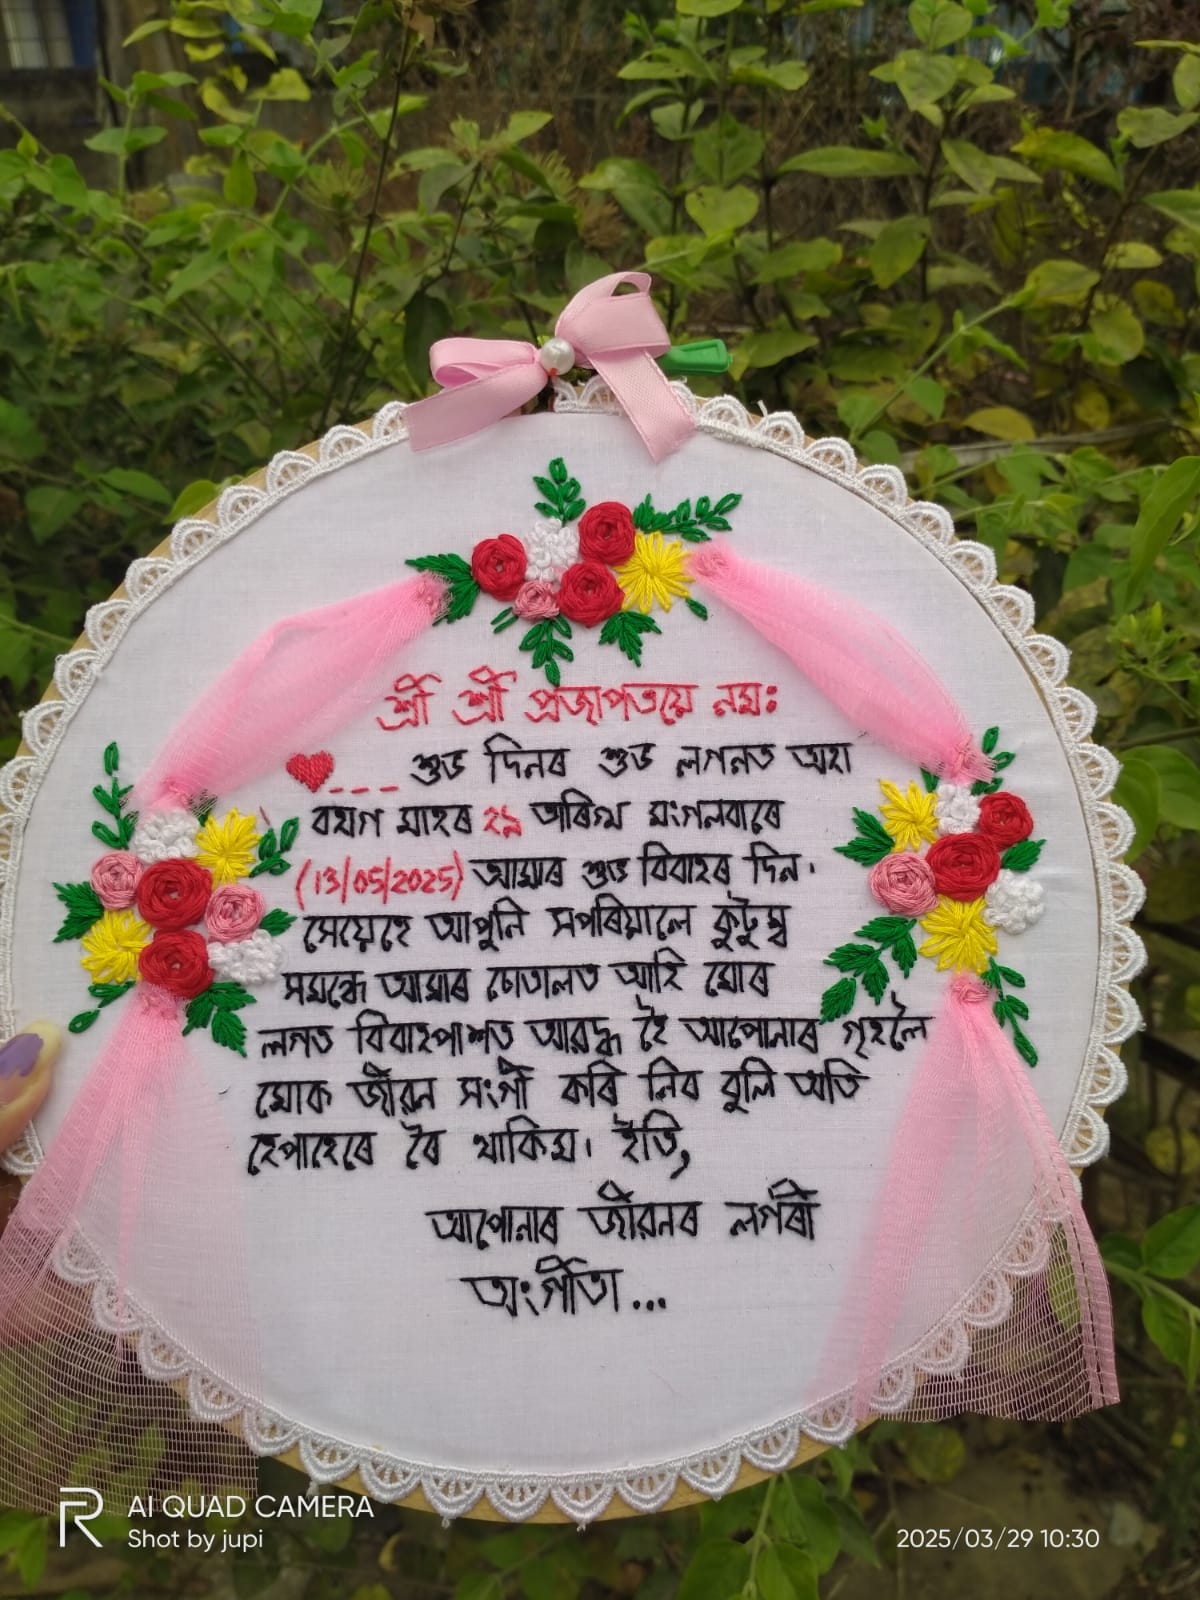 শ্ৰী শ্ৰী প্ৰজাপতয়ে নমঃ
শুভ দিনৰ শুভ লগনত অহা
বহাগ মাহৰ ২৯ তাৰিখ মংগলবাৰে
(13/05/2025) আমাৰ শুভ বিবাহৰ দিন।
সেয়েহে আপুনি সপৰিয়ালে কুটুম্ব
সমন্ধে আমাৰ চোতালত আহি মোৰ
লগত বিবাহপাশত আৱদ্ধ হৈ আপোনাৰ গৃহলৈ
মোক জীৱন সংগী কৰি নিব বুলি অতি
হেপাহেৰে ৰৈ থাকিম। ইতি,
আপোনাৰ জীৱনৰ লগৰী
অংগীতা...
AI QUAD CAMERA
Shot by jupi
2025/03/29 10:30